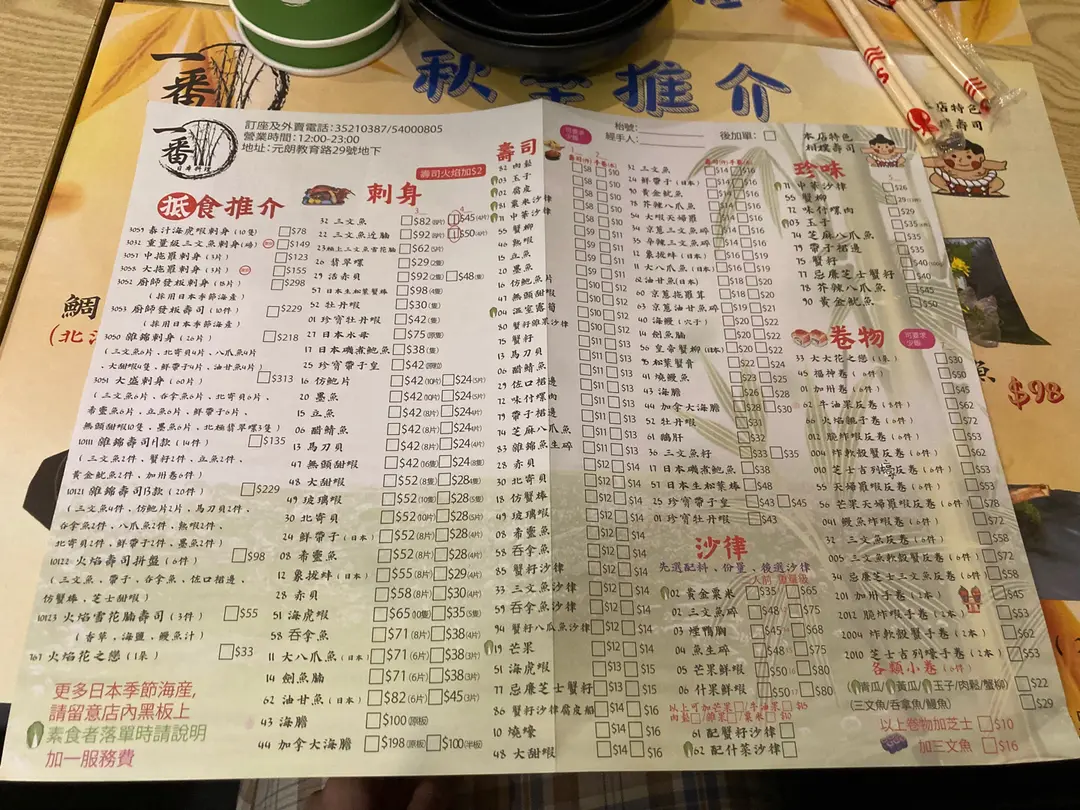 一番
秋季推介
一番
日本料理
訂座及外賣電話：35210387/54000805
營業時間：12:00-23:00
地址：元朗教育路29號地下
壽司火焰加$2
抵食推介
3032 重量級三文魚刺身(鳩) $149
3051 中拖羅刺身(3片) $123
3058 大拖羅刺身(3片) $155
3052 廚師發板刺身(18片) $298
(採用日本季節海產)
3053 廚師發板壽司(10件) $229
(採用日本季節海產)
3050 雜錦刺身(26片) $218
(三文魚6片，北寄貝4片，八爪魚4片
大甜蝦4隻，鮮帶子4片，油甘魚4片)
3054 大盛刺身(60片) $313
(三文魚6片，吞拿魚6片，北寄貝6片，
希靈魚6片，立魚6片，鮮帶子6片，
無頭甜蝦10隻，墨魚6片，北極翡翠螺3隻)
10111 雜錦壽司A款(14件) $135
(三文魚2件，蟹籽2件，立魚2件，
黃金魷魚2件，加州卷6件)
10121 雜錦壽司B款(20件) $229
(三文魚4件，仿鮑片2片，馬刀貝2件，
吞拿魚2件，八爪魚2件，熟蝦2件，
北寄貝2件，鮮帶子2件，墨魚2件)
10122 火焰壽司拼盤(6件) $98
(三文魚，帶子，吞拿魚，佐口裙邊，
仿蟹棒，芝士甜蝦)
10123 火焰雪花腩壽司(3件) $55
(香草，海鹽，鰻魚汁)
火焰花之戀(1隻) $33
更多日本季節海産，
請留意店內黑板上
素食者落單時請說明
加一服務費
刺身
32 三文魚 $82(8片) $45(4片)
22 三文魚近腩 $92(8片) $50(4片)
23 極上三文魚雪花腩 $62(5片)
26 翡翠螺 $29(2隻)
29 活赤貝 $92(2隻) $48(隻)
51 日本生松葉蟹棒 $98(4隻)
52 牡丹蝦 $30(隻)
01 珍寶牡丹蝦 $42(隻)
27 日本水母 $75(原隻)
17 日本磯煮鮑魚 $38(隻)
25 珍寶帶子皇 $42(原粒)
16 仿鮑片 $42(10片) $24(5片)
20 墨魚 $42(10片) $24(5片)
15 立魚 $42(8片) $24(4片)
06 醋鯖魚 $42(8片) $24(4片)
13 馬刀貝 $42(8片) $24(4片)
47 無頭甜蝦 $42(16隻) $24(8隻)
48 大甜蝦 $52(8隻) $28(4隻)
49 玻璃蝦 $52(10隻) $28(5隻)
30 北寄貝 $52(10片) $28(5片)
24 鮮帶子(日本) $52(8片) $28(4片)
08 希靈魚 $52(8片) $28(4片)
12 象拔蚌(日本) $55(8片) $29(4片)
28 赤貝 $58(8片) $30(4片)
51 海虎蝦 $65(10隻) $35(5隻)
58 吞拿魚 $71(8片) $38(4片)
11 大八爪魚(日本) $71(6片) $38(3片)
14 劍魚腩 $71(6片) $38(3片)
62 油甘魚(日本) $82(6片) $45(3片)
43 海膽 $100(原板)
44 加拿大海膽 $198(原板) $100(半板)
壽司
可要求少飯
壽司(件) 手卷(本)
82 肉鬆 $8 $10
03 玉子
02 腐皮
81 粟米沙律
11 中華沙律
55 蟹柳
46 熟蝦
15 立魚
20 墨魚
16 仿鮑魚片
47 無頭甜蝦
04 溫室露筍
80 蟹籽雜菜沙律
15 蟹籽
13 馬刀貝
06 醋鯖魚
29 佐口裙邊
12 味什螺肉
19 帶子裙邊
74 芝麻八爪魚
83 雜錦魚生碎
28 赤貝
30 北寄貝
18 仿蟹棒
49 玻璃蝦
08 希靈魚
58 吞拿魚
85 蟹籽沙律
33 三文魚沙律
59 吞拿魚沙律
94 蟹籽八爪魚沙律 $12 $14
19 芒果 $12 $14
51 海虎蝦 $13 $15
77 忌廉芝士蟹籽 $13 $15
86 蟹籽沙律腐皮船 $14 $16
10 燒蠔
48 大甜蝦 $14 $16
枱號：
經手人：
後加單：
壽司(件) 手卷(本)
32 三文魚 $14 $16
24 鮮帶子(日本) $14 $16
90 黃金魷魚 $14 $16
78 芥辣八爪魚 $14 $16
54 大蝦天婦羅 $14 $16
34 京蔥三文魚碎 $14 $16
35 辛辣三文魚碎 $14 $16
12 象拔蚌(日本) $16 $19
11 大八爪魚(日本) $16 $19
62 油甘魚(日本) $18 $20
60 京蔥拖羅茸 $18 $20
63 京蔥油甘魚碎 $19 $21
40 海鰻(穴子) $20 $22
14 劍魚腩 $20 $22
56 皇帝蟹柳(日本) $20 $22
95 松葉蟹膏 $22 $24
41 燒鰻魚 $23 $25
43 海膽 $26 $28
44 加拿大海膽 $28 $30
52 牡丹蝦 $31
61 鵝肝 $32
36 三文魚籽 $33 $35
17 日本磯煮鮑魚 $38
51 日本生松葉棒 $48
25 珍寶帶子皇 $43 $45
01 珍寶牡丹蝦 $43
沙律
先選配料、份量、後選沙律
02 黃金粟米 $35 $65
02 三文魚碎 $48 $75
03 煙鴨胸 $45 $68
04 魚生碎 $50 $75
05 芒果鮮蝦 $50 $80
06 什果鮮蝦 $50 $80
61 配蟹籽沙律
62 配什菜沙律
本店特色
相撲壽司
珍味
11 中華沙律 $26
55 蟹柳 $29
72 味什螺肉 $29
03 玉子 $35
74 芝麻八爪魚 $35
79 帶子裙邊 $35
75 蟹籽 $40
77 忌廉芝士蟹籽
78 芥辣八爪魚 $45
90 黃金魷魚 $50
卷物
可要求少飯
33 大大花之戀(1隻) $30
45 福神卷(6件) $50
01 加州卷(6件) $45
62 牛油果反卷(8件) $62
66 火焰親子卷(6件) $72
012 脆炸蝦反卷(6件) $53
004 炸軟殼蟹反卷(6件) $62
010 芝士吉列蠔反卷(6件) $53
55 天婦羅蝦反卷(6件) $55
56 芒果天婦羅蝦反卷(6件) $58
041 鰻魚炸蝦卷(6件) $72
32 三文魚反卷(6件) $58
005 三文魚軟殼蟹反卷(6件) $72
34 忌廉芝士三文魚反卷(6件) $58
201 加州手卷(2本) $45
2012 脆炸蝦手卷(2本) $53
2004 炸軟殼蟹手卷(2本) $62
2010 芝士吉列蠔手卷(2本) $53
各類小卷(6件)
(青瓜/黃瓜/玉子/肉鬆/蟹柳) $22
(三文魚/吞拿魚/鰻魚) $29
以上卷物加芝士 $10
加三文魚 $16
本店特色
鯛
$98